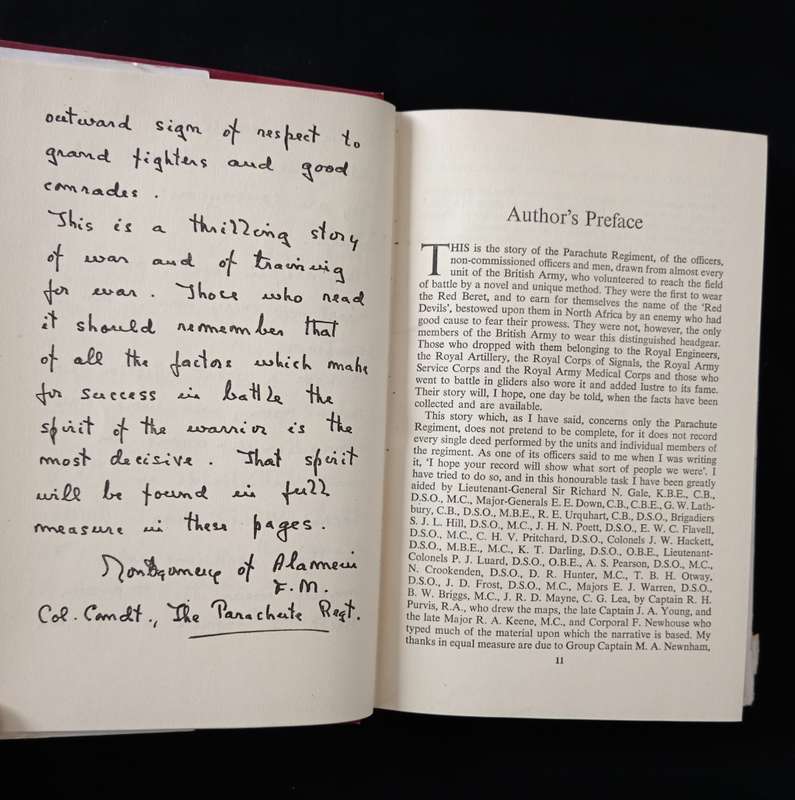 outward sign of respect to
grand fighters and good
comrades.
This is a thrilling story
of war and of training
for war. Those who read
it should remember that
of all the factors which make
for success in battle the
spirit of the warrior is the
most decisive. That spirit
will be found in full
measure in these pages.
Montgomery of Alamein
F.M.
Col. Comdt., The Parachute Regt.
Author's Preface
THIS is the story of the Parachute Regiment, of the officers,
non-commissioned officers and men, drawn from almost every
unit of the British Army, who volunteered to reach the field
of battle by a novel and unique method. They were the first to wear
the Red Beret, and to earn for themselves the name of the 'Red
Devils', bestowed upon them in North Africa by an enemy who had
good cause to fear their prowess. They were not, however, the only
members of the British Army to wear this distinguished headgear.
Those who dropped with them belonging to the Royal Engineers,
the Royal Artillery, the Royal Corps of Signals, the Royal Army
Service Corps and the Royal Army Medical Corps and those who
went to battle in gliders also wore it and added lustre to its fame.
Their story will, I hope, one day be told, when the facts have been
collected and are available.
This story which, as I have said, concerns only the Parachute
Regiment, does not pretend to be complete, for it does not record
every single deed performed by the units and individual members of
the regiment. As one of its officers said to me when I was writing
it, 'I hope your record will show what sort of people we were'. I
have tried to do so, and in this honourable task I have been greatly
aided by Lieutenant-General Sir Richard N. Gale, K.B.E., C.B.,
D.S.O., M.C., Major-Generals E. E. Down, C.B., C.B.E., G. W. Lath-
bury, C.B., D.S.O., M.B.E., R. E. Urquhart, C.B., D.S.O., Brigadiers
S. J. L. Hill, D.S.O., M.C., J. H. N. Poett, D.S.O., E. W. C. Flavell,
D.S.O., M.C., C. H. V. Pritchard, D.S.O., Colonels J. W. Hackett,
D.S.O., M.B.E., M.C., K. T. Darling, D.S.O., O.B.E., Lieutenant-
Colonels P. J. Luard, D.S.O., O.B.E., A. S. Pearson, D.S.O., M.C.,
N. Crookenden, D.S.O., D. R. Hunter, M.C., T. B. H. Otway,
D.S.O., J. D. Frost, D.S.O., M.C., Majors E. J. Warren, D.S.O.,
B. W. Briggs, M.C., J. R. D. Mayne, C. G. Lea, by Captain R. H.
Purvis, R.A., who drew the maps, the late Captain J. A. Young, and
the late Major R. A. Keene, M.C., and Corporal F. Newhouse who
typed much of the material upon which the narrative is based. My
thanks in equal measure are due to Group Captain M. A. Newnham,
11